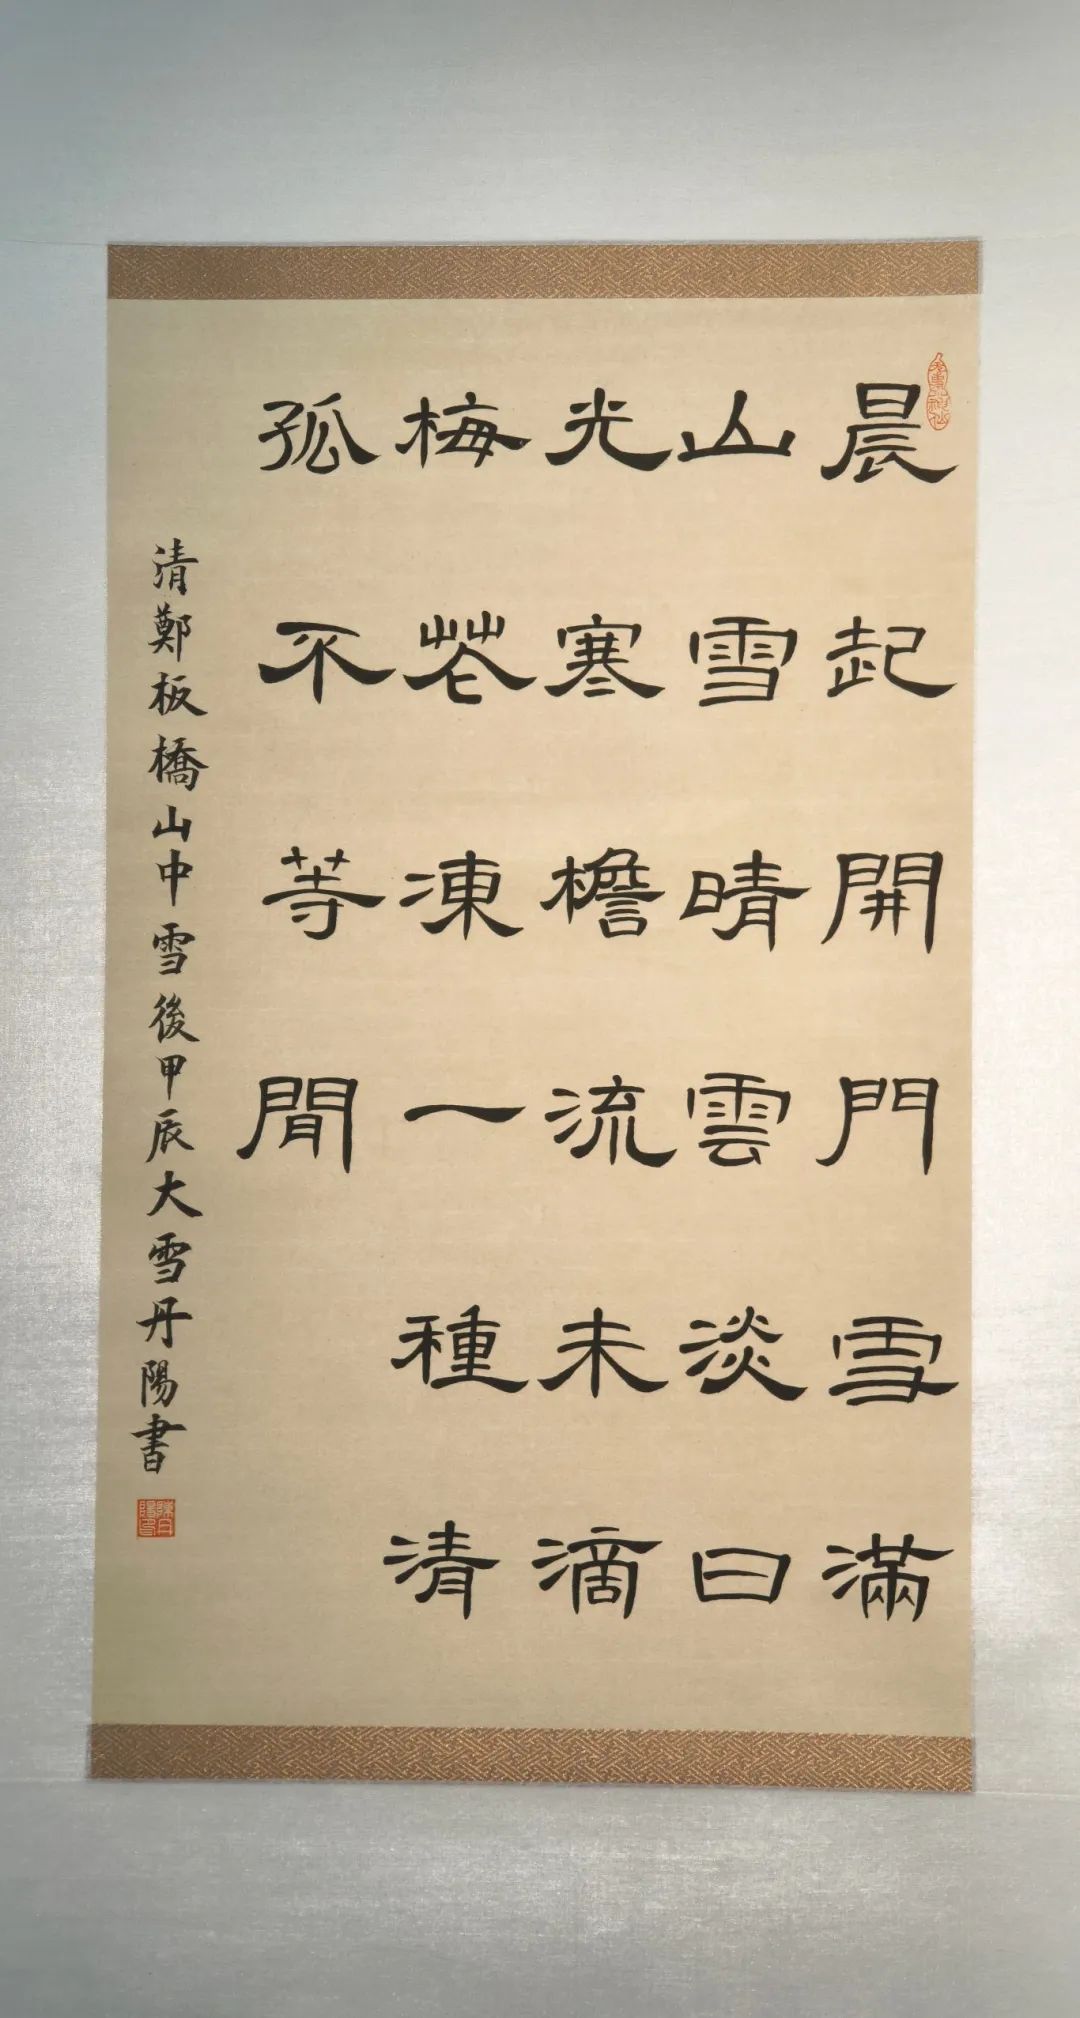 晨起開門雪滿
山雪晴雲淡日
光寒檐流未滴
梅花凍一種清
孤不等閒
清鄭板橋山中雪後甲辰大雪丹陽書